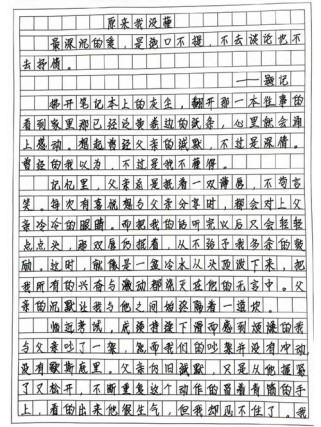 原来我没懂
最深沉的爱，是绝口不提，不去谈论也不
去择债。
——题记
拂开笔记本上的灰尘，翻开那一本往事的
看到家里那已经泛黄卷边的纸条，心里就会涌
上感动，想起曾经父亲的沉默，不过是深情。
曾经的我以为，不过是我不懂得。
记忆里，父亲总是抿着一双薄唇，不苟言
笑。每次有喜悦想与父亲分享时，都会对上父
亲冷冷的眼睛。而把我的话听完以后只会轻轻
点点头，那双唇仍抿着，从不给予我多余的鼓
励。这时，就像是一盆冷水从头顶泼下来，把
我所有的兴奋与激动都浇灭在他的无言中。父
亲的沉默让我与他之间始终隔着一道坎。
临近考试，成绩持续下滑而感到烦燥的我
与父亲吵了一架，然而我们的吵架并没有冲动
没有歇斯底里。父亲仍旧沉默，只是从他握紧
了又松开，不断重复这个动作的冒着青筋的手
上，看的出来他很生气，但我却忍不住了。我